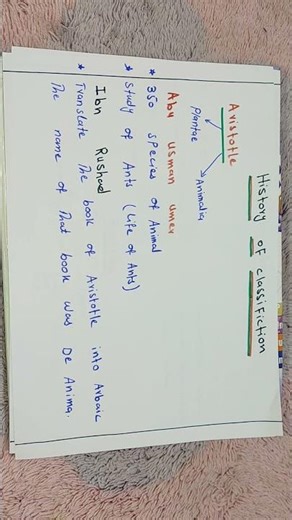 History of classifiction
Aristotle
Plantae
Animalia
Abu Usman umer
* 350 species of Animal
* Study of Ants (Life of Ants)
Ibn Rushed
* Translate The book of Aristotle into Arbaic
The name of That book was De Anima.